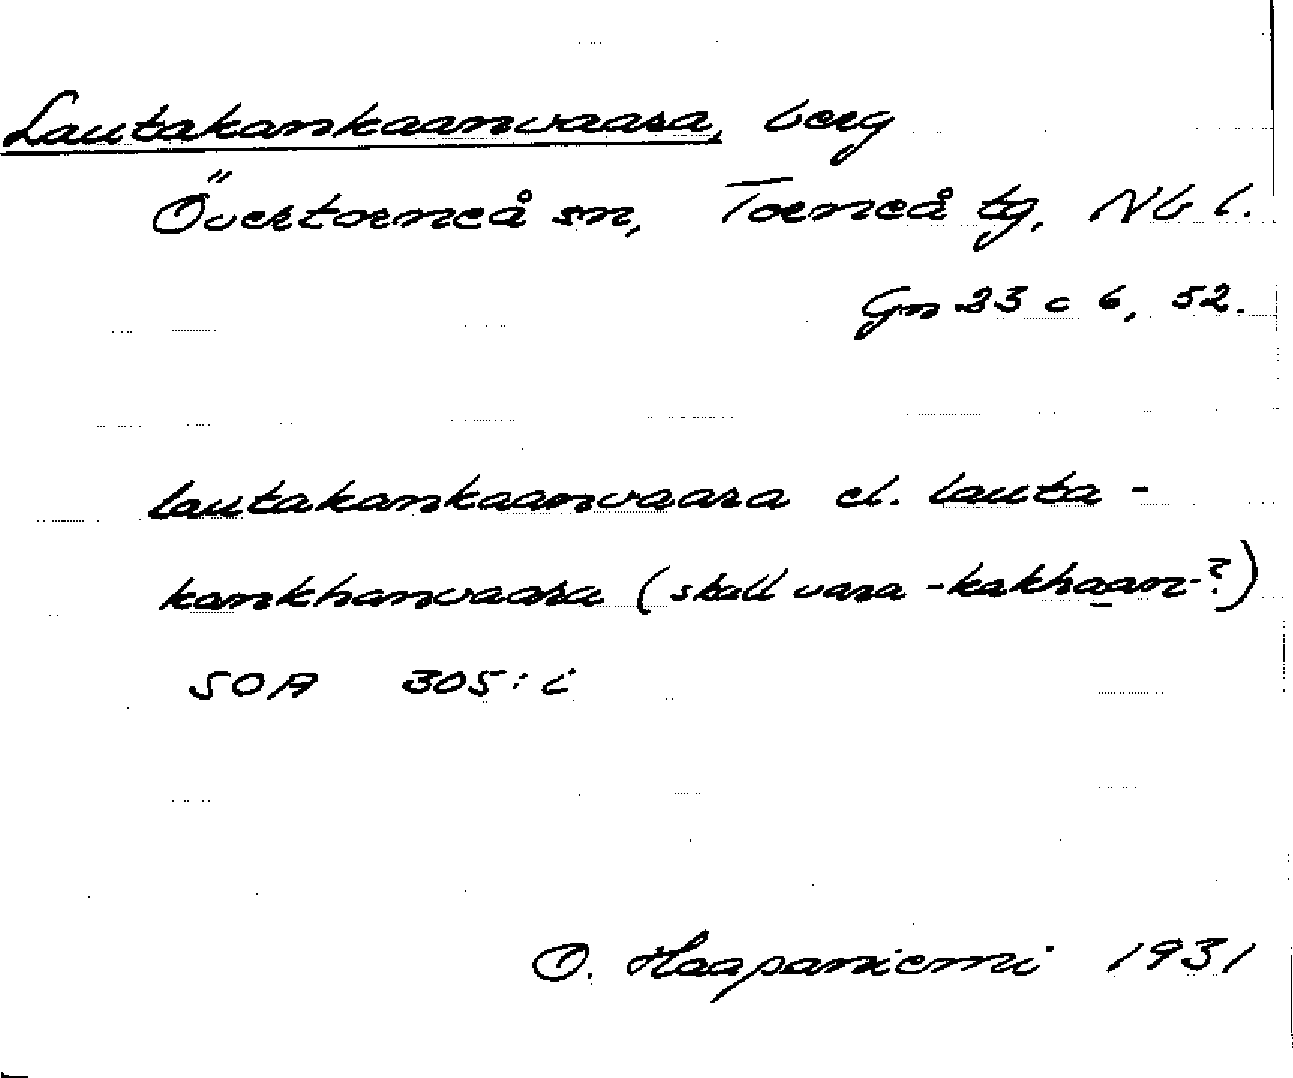 Lautakankaanvaara, berg
Övertorneå sn, Torneå tg, Nb l.
Gn 23 c 6, 52.
lautakankaanvaara el. lauta-
kankhanvaara (skall vara -kakhaan-?)
SOA 305: i
O. Haapaniemi 1931